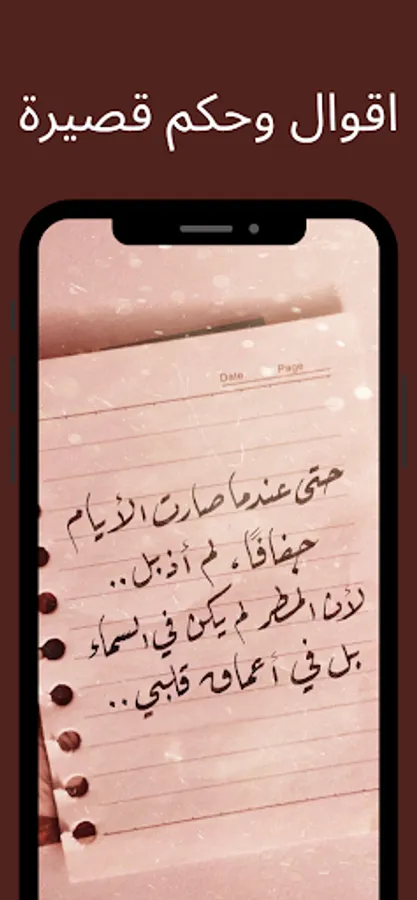 اقوال وحكم قصيرة
Date Page
حتى عندما صارت الأيام
جفافًا، لم أذبل..
لأن المطر لم يكن في السماء
بل في أعماق قلبي..